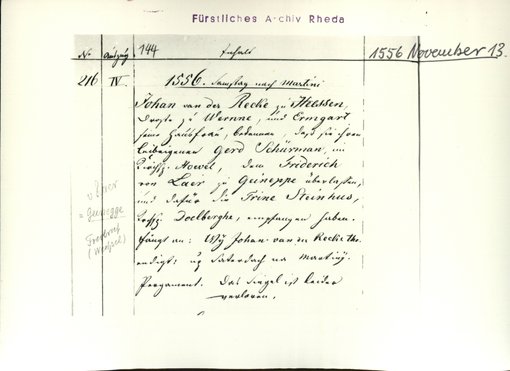 Fürstliches Archiv Rheda
No Auszug 144 Inhalt 1556 November 13.
216 IV. 1556. Samstag nach Martini
Johan van der Recke zu Heessen,
Droste zu Wernne, und Ermgart
seine Hausfrau, bekennen, daß sie ihren
Leibeigenen Gerd Schürman, im
Kirchsp. Howel, dem Friderich
von Laer zu Geineppe überlassen,
und dafür die Trine Steinhus,
Kirchsp. Doelberghe, empfangen haben.
Fängt an: Wÿ Johan van der Recke
endigt: up Saterdach na Martinÿ.
Pergament. Das Siegel ist leider
verloren.
v.
=
Frederik